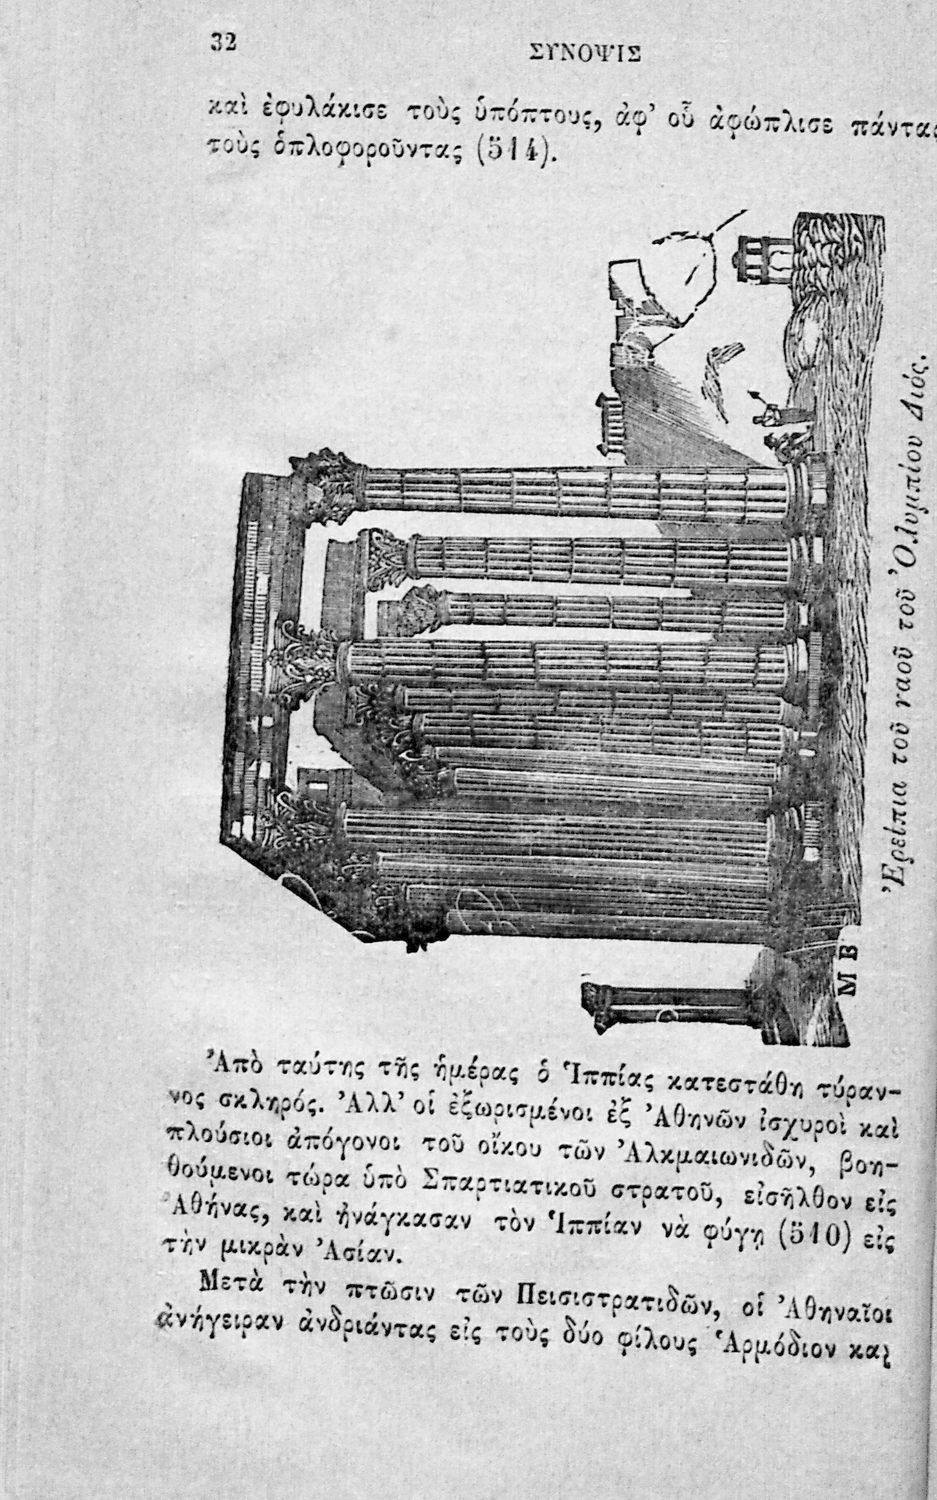 32
ΣΥΝΟΨΙΣ
καὶ ἐφυλάκισε τοὺς ὑπόπτους, ἀφ’ οὗ ἀφώπλισε πάντας
τοὺς ὁπλοφοροῦντας (514).
Ἐρείπια τοῦ ναοῦ τοῦ Ὀλυμπίου Διός.
Μ Β
Ἀπὸ ταύτης τῆς ἡμέρας ὁ Ἱππίας κατεστάθη τύραν-
νος σκληρός. Ἀλλ’ οἱ ἐξωρισμένοι ἐξ Ἀθηνῶν ἰσχυροὶ καὶ
πλούσιοι ἀπόγονοι τοῦ οἴκου τῶν Ἀλκμαιωνιδῶν, βοη-
θούμενοι τώρα ὑπὸ Σπαρτιατικοῦ στρατοῦ, εἰσῆλθον εἰς
Ἀθήνας, καὶ ἠνάγκασαν τὸν Ἱππίαν νὰ φύγῃ (510) εἰς
τὴν μικρὰν Ἀσίαν.
Μετὰ τὴν πτῶσιν τῶν Πεισιστρατιδῶν, οἱ Ἀθηναῖοι
ἀνήγειραν ἀνδριάντας εἰς τοὺς δύο φίλους Ἁρμόδιον καὶ